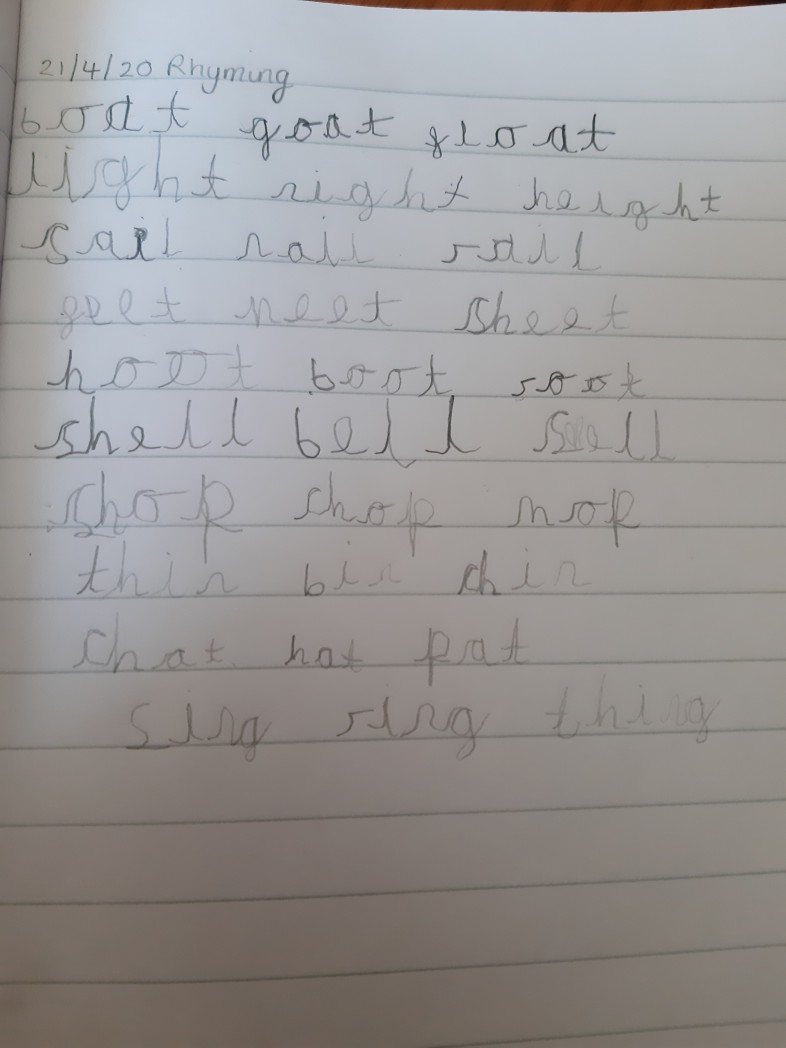 21/4/20 Rhyming
boat goat gloat
light night height
sail nail rail
feet neet sheet
hoot boot root
shell bell sell
shop chop mop
thin bin chin
chat hat pat
sing ring thing